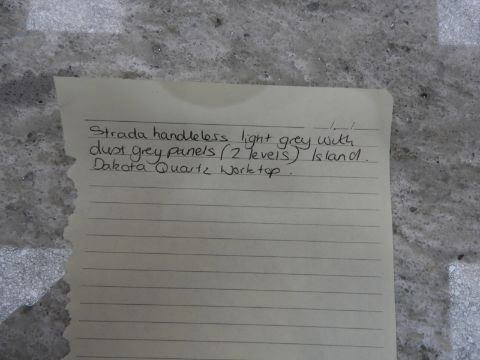 Strada handleless light grey with
dust grey panels (2 levels) Island.
Dakota Quartz Worktop.